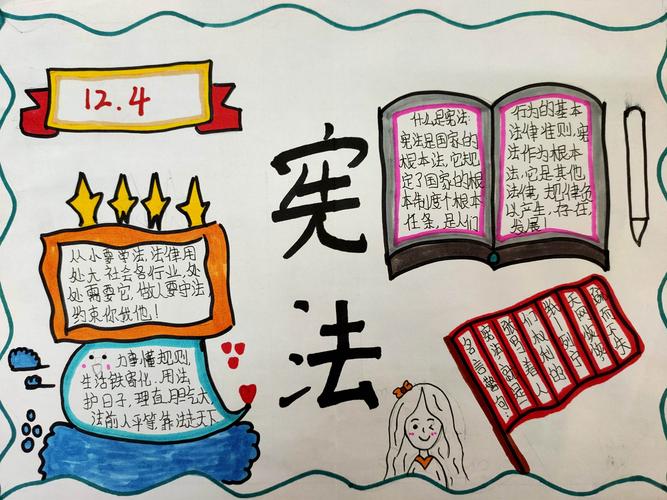 12.4
宪
法
什么是宪法:
宪法是国家的
根本法,它规
定了国家的根
本制度个根本
任务,是人们
行为的基本
法律准则,宪
法作为根本
法,它是其他
法律,规律负
以产生,存在
发展
从小要学法,法律用
处大 社会各行业,处
处需要它,做人要守法
约束你我他!
力争懂规则,
生活铁窗化,用法
护日子,理直用气大
法前人平等,靠法走天下
名言警句:
天网恢恢
疏而不失